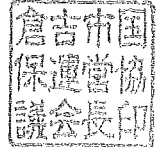 倉吉市国
保運営協
議会長印